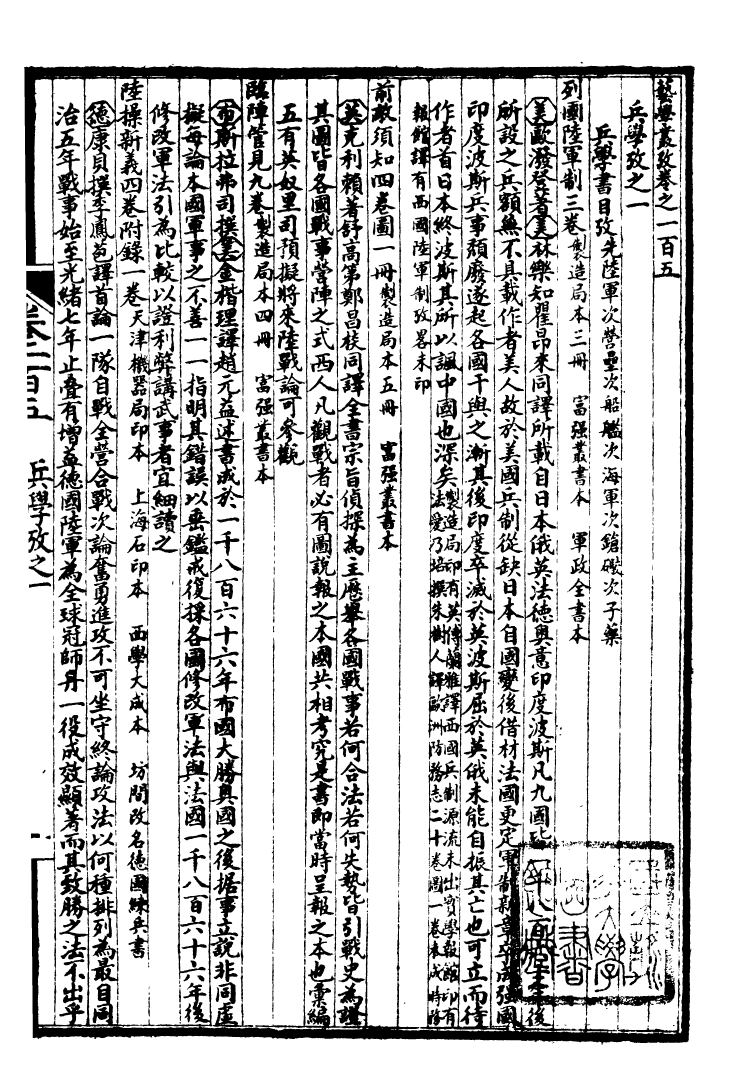 藝學叢攷卷之一百五
兵學攷之一
兵學書目攷先陸軍次營壘次船艦次海軍次鎗礮次子藥
列國陸軍制三卷製造局本三冊 富强叢書本 軍政全書本
美歐潑登著美林樂知瞿昂來同譯所載自日本俄英法德奧意印度波斯凡九國
所設之兵額無不具載作者美人故於美國兵制從缺日本自國變後借材法國更定軍制新章卒成强國
印度波斯兵事頹廢遂起各國干與之漸其後印度卒滅於英波斯屈於英俄未能自振其亡也可立而待
作者首日本終波斯其所以諷中國也深矣製造局印有英傅蘭雅譯西國兵制源流未出實學報館印有
法愛乃培撰朱樹人譯歐洲防務志二十卷圖一卷未成時務
報館譯有西國陸軍制攷畧未印
前敵須知四卷圖一冊製造局本五冊 富强叢書本
英克利賴著舒高第鄭昌棪同譯全書宗旨偵探為主應舉各國戰事若何合法若何失勢皆引戰史為證
其圖皆各國戰事營陣之式西人凡觀戰者必有圖說報之本國共相考究是書即當時呈報之本也彙編
五有英奴里司預擬將來陸戰論可參觀
臨陣管見九卷製造局本四冊 富强叢書本
布斯拉弗司撰美金楷理譯趙元益述書成於一千八百六十六年布國大勝奧國之後据事立說非同虛
擬每論本國軍事之不善一一指明其錯誤以垂鑑戒復採各國修改軍法與法國一千八百六十六年後
修改軍法引為比較以證利弊講武事者宜細讀之
陸操新義四卷附錄一卷天津機器局印本 上海石印本 西學大成本 坊間改名德國練兵書
德康貝撰李鳳苞譯首論一隊自戰全營合戰次論奮勇進攻不可坐守終論攻法以何種排列為最目同
治五年戰事始至光緒七年止疊有增益德國陸軍為全球冠師丹一役成效顯著而其致勝之法不出乎
卷一百五 兵學攷之一 一